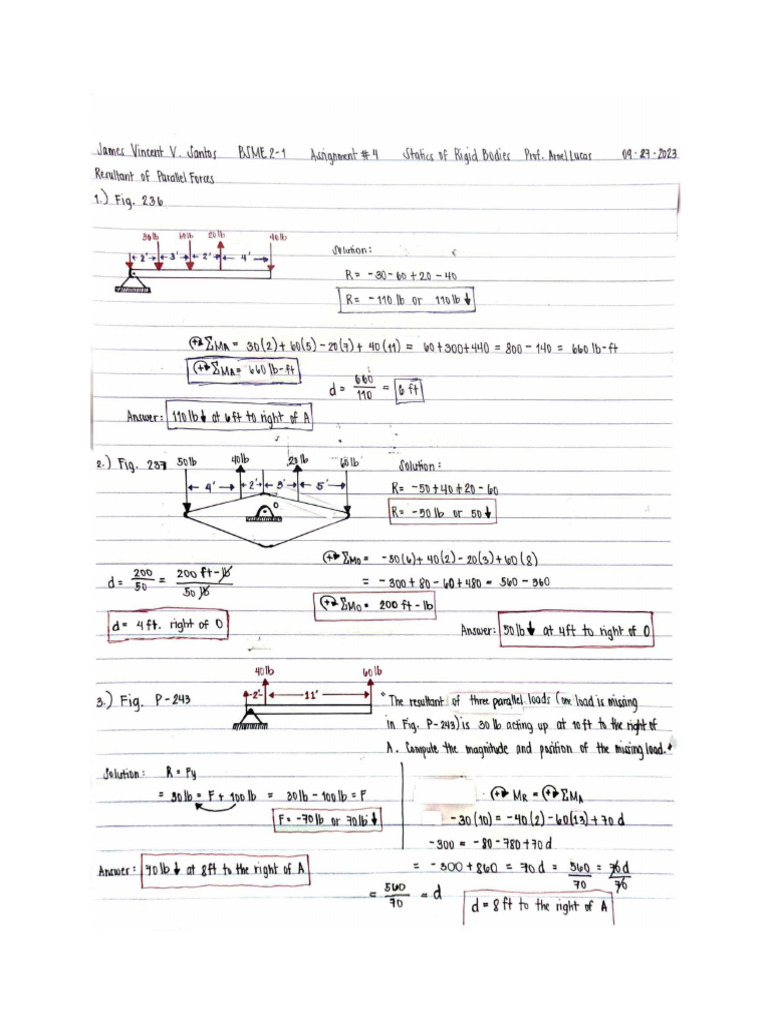 James Vincent V. Santos BSME 2-1 Assignment #4 Statics of Rigid Bodies Prof. Arnel Lucas 09-27-2023
Resultant of Parallel Forces
1.) Fig. 236
30lb 60lb 20lb 40lb
2' 3' 2' 4'
Solution:
R = -30-60+20-40
R = -110 lb or 110lb↓
ΣMA = 30(2)+60(5)-20(7)+40(11) = 60+300+440 = 800-140 = 660 lb-ft
ΣMA = 660 lb-ft
d = 660/110 = 6 ft
Answer: 110lb↓ at 6ft to right of A
2.) Fig. 237 50lb 40lb 20lb 60lb
4' 2' 3' 5'
O
Solution:
R = -50+40+20-60
R = -50 lb or 50↓
ΣMO = -50(6)+40(2)-20(3)+60(8)
= -300+80-60+480 = 560-360
ΣMO = 200 ft-lb
d = 200/50 = 200 ft-lb/50 lb
d = 4ft. right of O
Answer: 50lb↓ at 4ft to right of O
3.) Fig. P-243
40lb 60lb
2' 11'
"The resultant of three parallel loads (one load is missing
in Fig. P-243) is 30 lb acting up at 10ft to the right of
A. Compute the magnitude and position of the missing load."
Solution: R = Fy
= 30lb = F + 100lb = 30lb - 100lb = F
F = -70lb or 70lb↓
Answer: 70lb↓ at 8ft to the right of A
MR = ΣMA
-30(10) = -40(2)-60(13)+70d
-300 = -80-780+70d
= -300+860 = 70d = 560/70 = 70d/70
= 560/70 = d
d = 8ft to the right of A